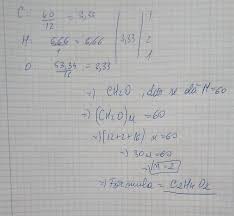 C: 40/12 = 3,33 | 3,33 | 1
H: 6,66/1 = 6,66 | 2
O 53,34/16 = 3,33 | 1
=> CH2O, dar se dă M=60
=> (CH2O)n = 60
=> (12+2+16)n = 60
=> 30n = 60
=> n = 2
=> Formula = C2H4O2